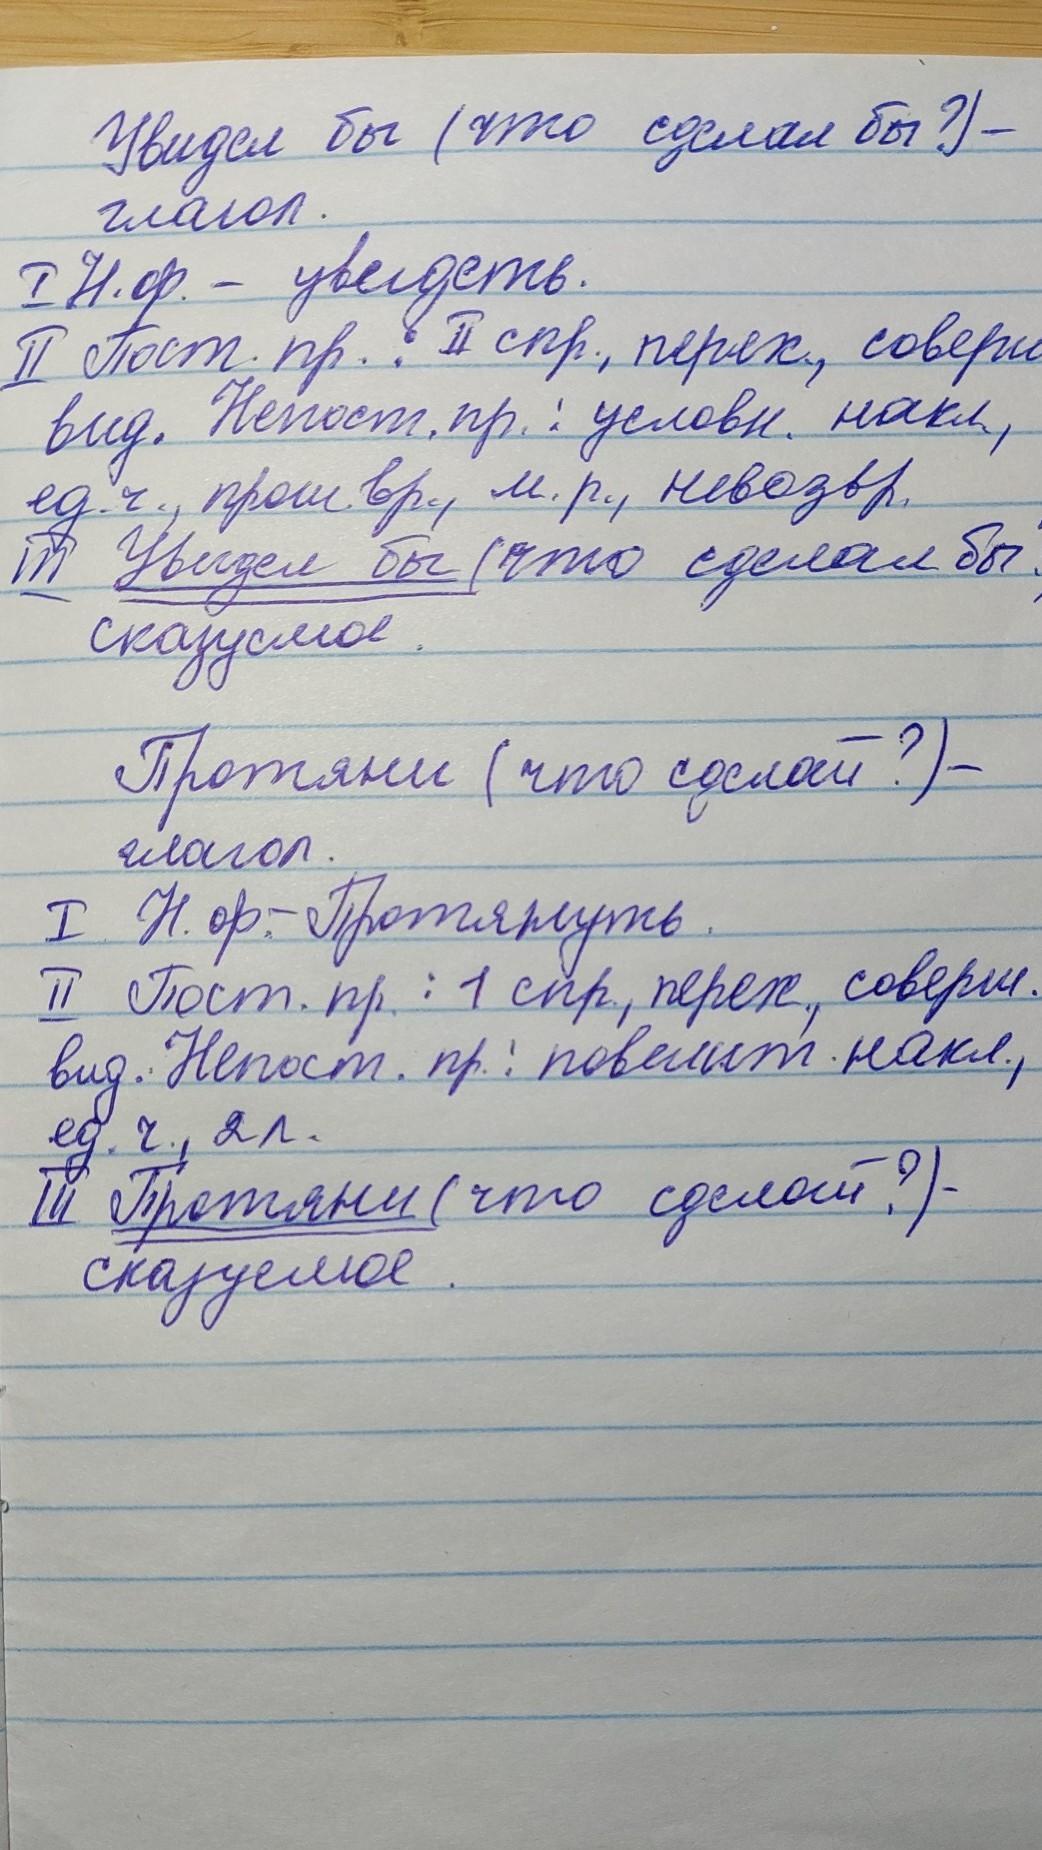 Увидел бы (что сделал бы?) –
глагол.
I Н.ф. – увидеть.
II Пост. пр.: II спр., перех., соверш
вид. Непост. пр.: условн. накл.,
ед.ч., прош. вр., м.р., невозвр.
III Увидел бы (что сделал бы
сказуемое.
Протяни (что сделай?) –
глагол.
I Н.ф. – Протянуть.
II Пост. пр.: 1 спр., перех., соверш.
вид. Непост. пр.: повелит. накл.,
ед. ч., 2 л.
III Протяни (что сделай?) –
сказуемое.